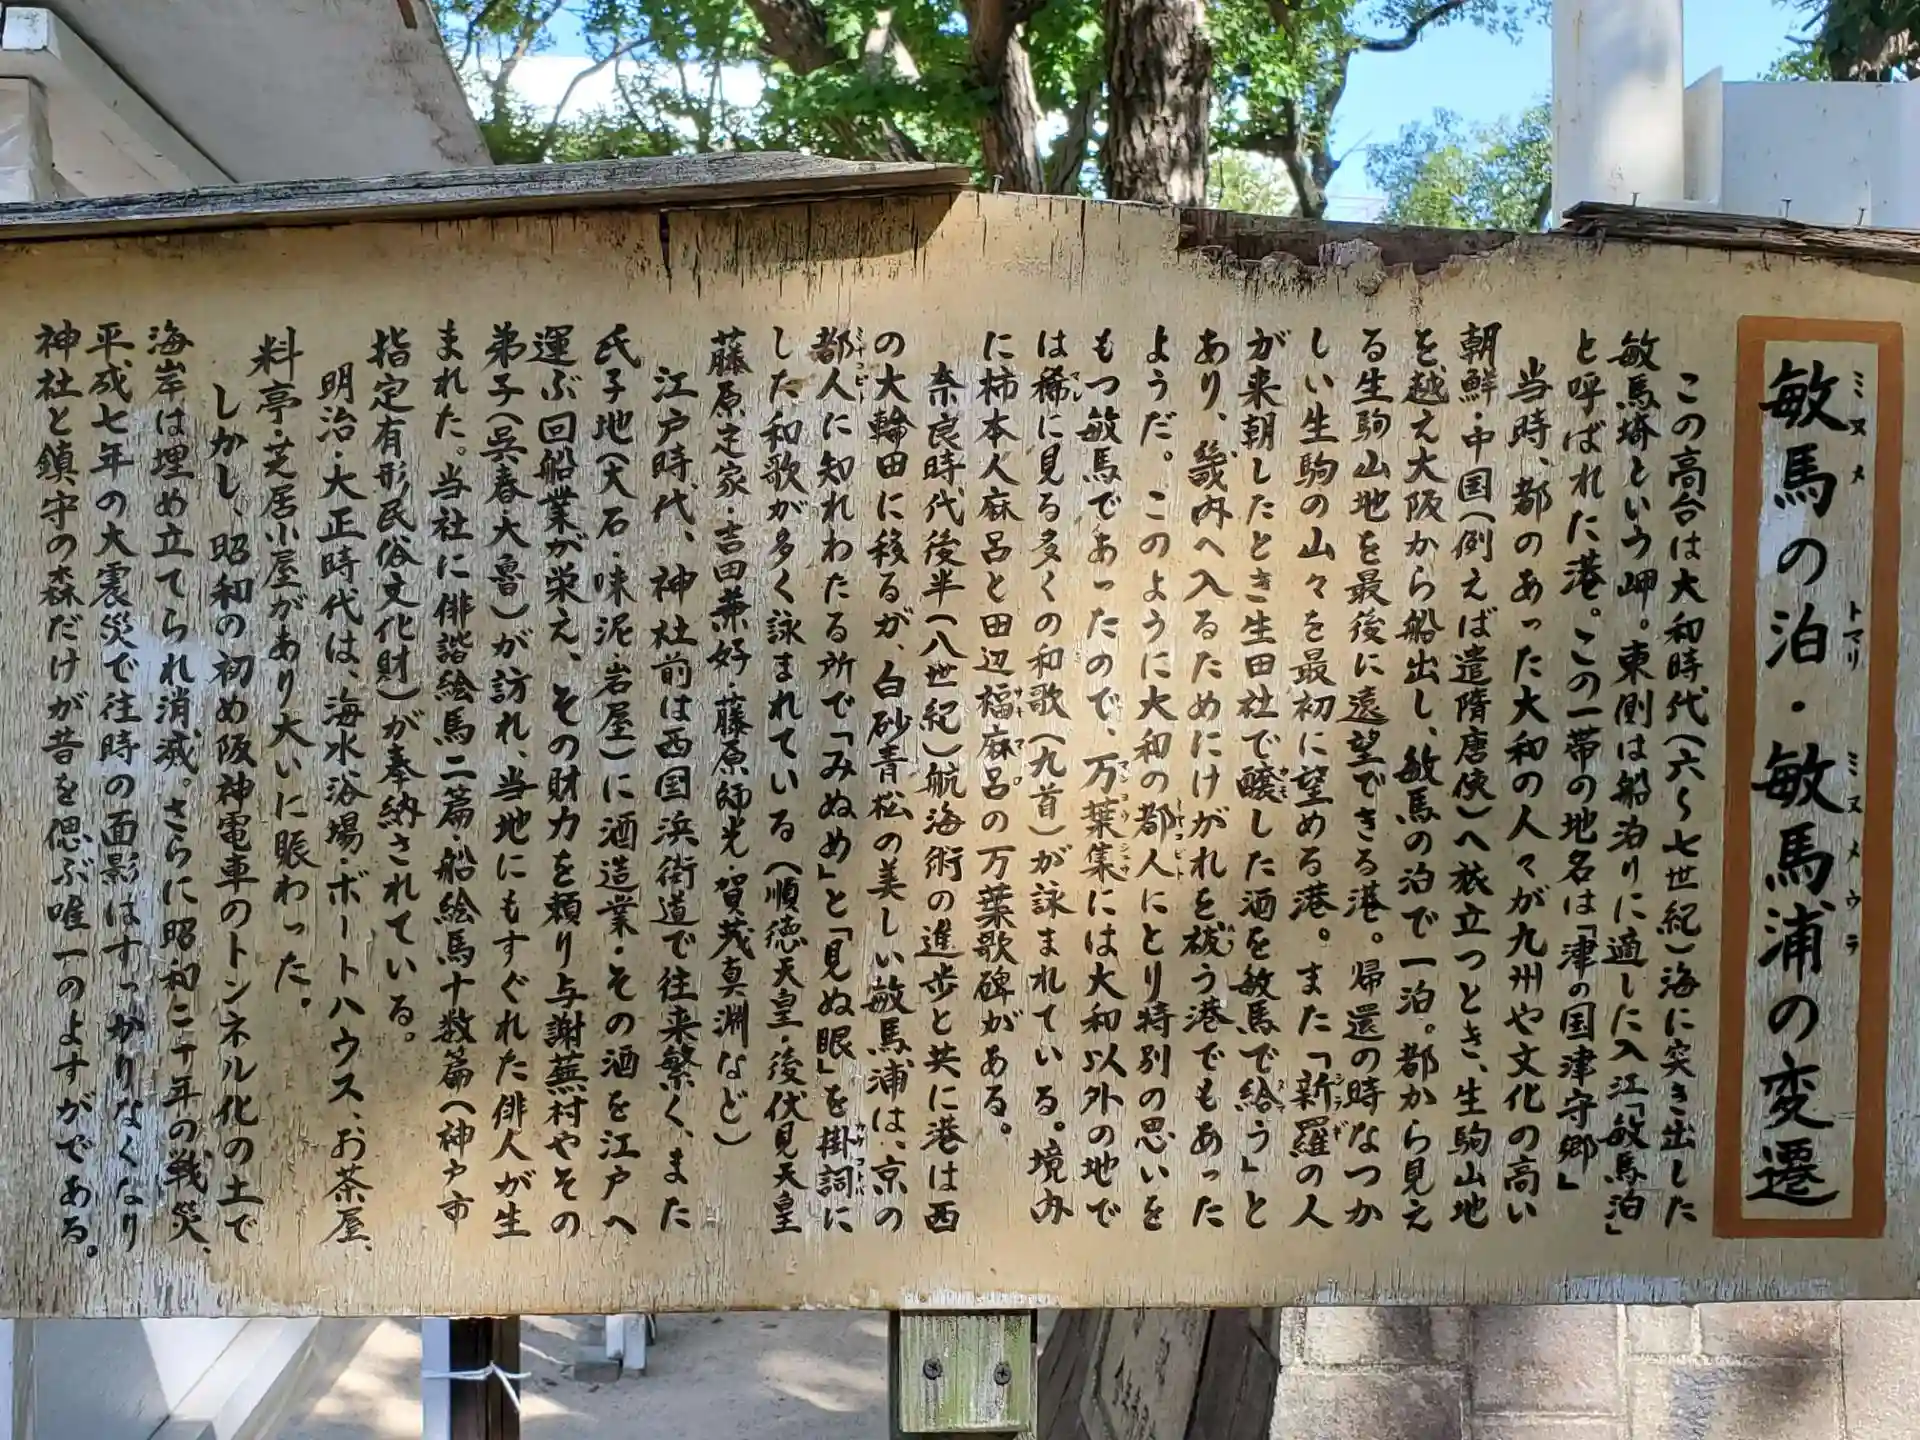 敏馬の泊・敏馬浦の変遷
この高台は大和時代(六〜七世紀)海に突き出した
敏馬埼という岬。東側は船泊りに適した入江「敏馬泊」
と呼ばれた港。この一帯の地名は「津の国津守郷」
当時、都のあった大和の人々が九州や文化の高い
朝鮮・中国(例えば遣隋唐使)へ旅立つとき、生駒山地
を越え大阪から船出し、敏馬の泊で一泊。都から見え
る生駒山地を最後に遠望できる港。帰還の時なつか
しい生駒の山々を最初に望める港。また「新羅の人
が来朝したとき生田社で醸した酒を敏馬で給う」と
あり、畿内へ入るためにけがれを祓う港でもあった
ようだ。このように大和の都人にとり特別の思いを
もつ敏馬であったので、万葉集には大和以外の地で
は稀に見る多くの和歌(九首)が詠まれている。境内
に柿本人麻呂と田辺福麻呂の万葉歌碑がある。
奈良時代後半(八世紀)航海術の進歩と共に港は西
の大輪田に移るが、白砂青松の美しい敏馬浦は、京の
都人に知れわたる所で「みぬめ」と「見ぬ眼」を掛詞に
した和歌が多く詠まれている(順徳天皇・後伏見天皇
藤原定家・吉田兼好・藤原師光・賀茂真淵など)
江戸時代、神社前は西国浜街道で往来繁く、また
氏子地(大石・味泥・岩屋)に酒造業・その酒を江戸へ
運ぶ回船業が栄え、その財力を頼り与謝蕪村やその
弟子(呉春・大魯)が訪れ、当地にもすぐれた俳人が生
まれた。当社に俳諧絵馬二篇・船絵馬十数篇(神戸市
指定有形民俗文化財)が奉納されている。
明治・大正時代は、海水浴場・ボートハウス、お茶屋、
料亭・芝居小屋があり大いに賑わった。
しかし、昭和の初め阪神電車のトンネル化の土で
海岸は埋め立てられ消滅。さらに昭和二十年の戦災、
平成七年の大震災で往時の面影はすっかりなくなり
神社と鎮守の森だけが昔を偲ぶ唯一のよすがである。